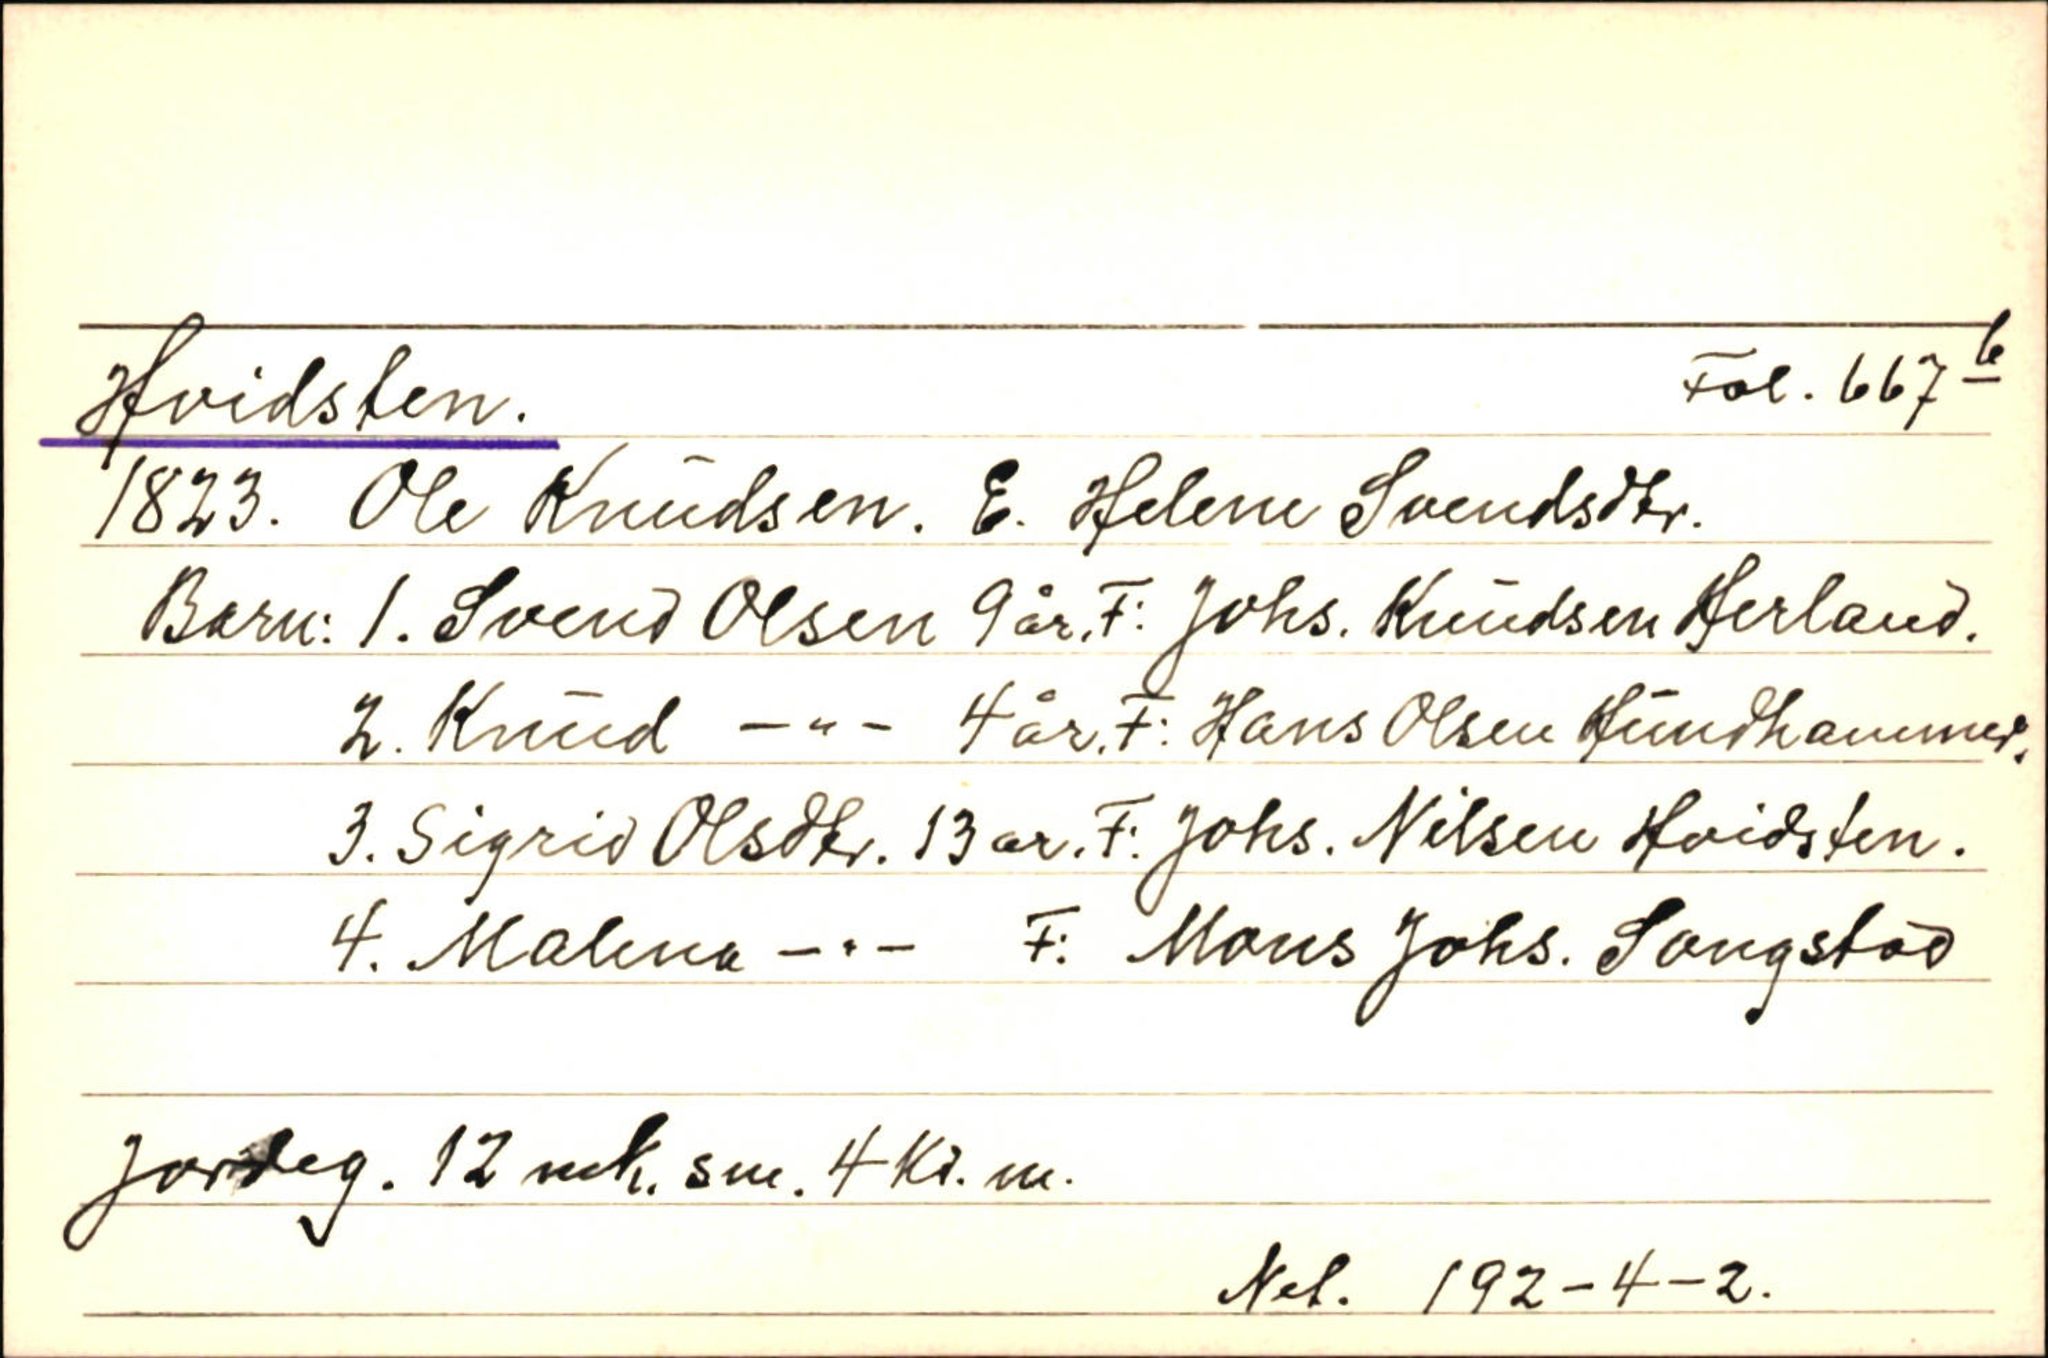 Hvidsten. Fol. 667 b
1823. Ole Knudsen. E. Helene Svendsdtr.
Barn: 1. Svend Olsen 9 år. F: Johs. Knudsen Herland.
2. Knud —"— 4 år. F: Hans Olsen Hundhammer.
3. Sigrid Olsdtr. 13 ar. F: Johs. Nilsen Hvidsten.
4. Malena —"— F: Mons Johs. Songstad
Jordeg. 12 mk. sm. 4 Kr. m.
Net. 192-4-2.